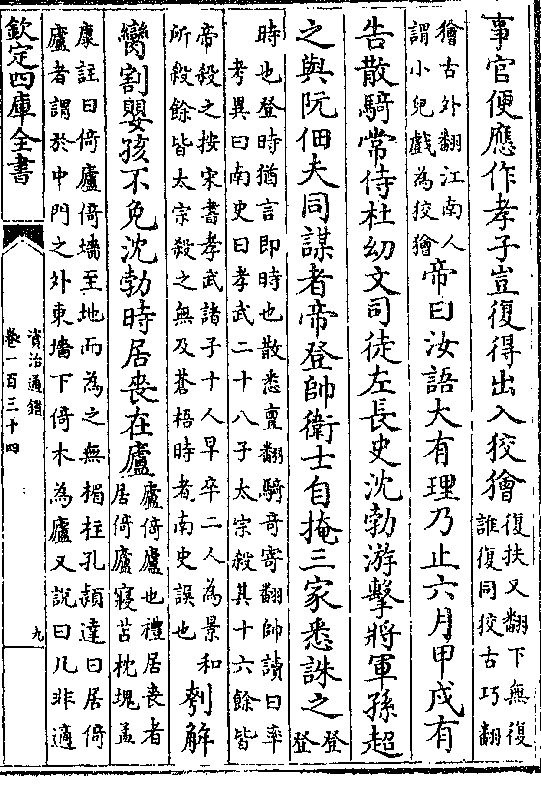 事官便應作孝子豈復得出入狡獪
復扶又翻下無復
誰復同狡古巧翻
獪古外翻江南人
謂小兒戲為狡獪
帝曰汝語大有理乃止六月甲戌有
告散騎常侍杜幼文司徒左長史沈勃游擊將軍孫超
之與阮佃夫同謀者帝登帥衛士自掩三家悉誅之
登
登
時也登時猶言即時也散悉亶翻騎奇寄翻帥讀曰率
考異曰南史曰孝武二十八子太宗殺其十六餘皆
帝殺之按宋書孝武諸子十人早卒二人為景和
所殺餘皆太宗殺之無及蒼梧時者南史誤也
刳解
臠割嬰孩不免沈勃時居喪在廬
廬倚廬也禮居喪者
居倚廬寢苫枕塊孟
康註曰倚廬倚墻至地而為之無楣柱孔穎達曰居倚
廬者謂於中門之外東墻下倚木為廬又説曰凡非適
欽定四庫全書
資治通鑑
卷一百三十四
九